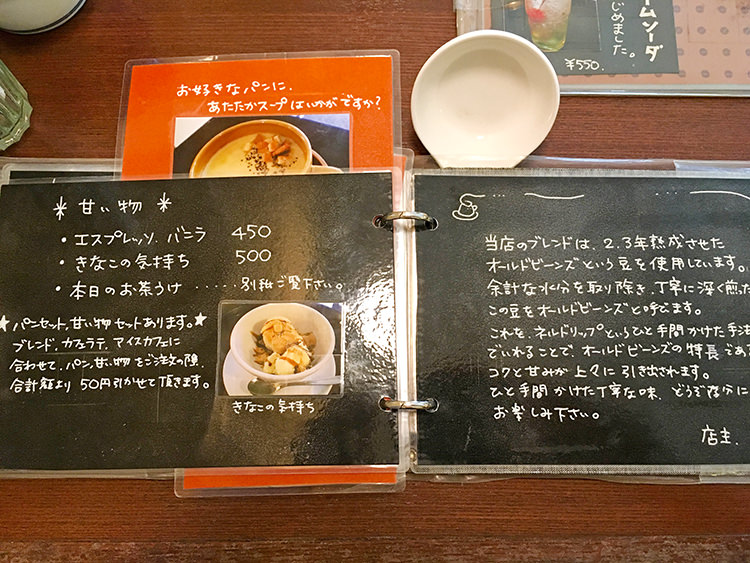 ームソーダ
じめました。
¥550.
お好きなパンに、
あたたかスープはいかがですか?
* 甘い物 *
・エスプレッソ、バニラ 450
・きなこの気持ち 500
・本日のお茶うけ ・・・・・別紙ご覧下さい。
★パンセット、甘い物セットあります。★
ブレンド、カフェラテ、アイスカフェに
合わせて、パン、甘い物をご注文の際、
合計額より50円引かせて頂きます。
きなこの気持ち
当店のブレンドは、2.3年熟成させた
オールドビーンズという豆を使用しています。
余計な水分を取り除き、丁寧に深く煎った
この豆をオールドビーンズと呼びます。
これを、ネルドリップというひと手間かけた手法
でいれることで、オールドビーンズの特長であ
コクと甘みが上々に引き出されます。
ひと手間かけた丁寧な味、どうぞ存分に
お楽しみ下さい。
店主.